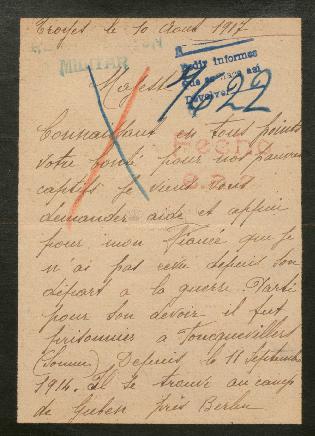 Troyes le 10 Aout 1917
MILITAR
Pedir informes
Devolver
9/622
Majesté
Fecho
Connaissant en tous points
votre bonté pour nos pauvres
captifs je viens vous
demander aide et appui
pour mon Fiancé que je
n'ai pas revu depuis son
départ a la guerre. Parti
pour son devoir il fut
prisonnier a Foncquevillers
(Somme) Depuis le 11 Septembre
1914. Il se trouve au camp
de Guben près Berlin